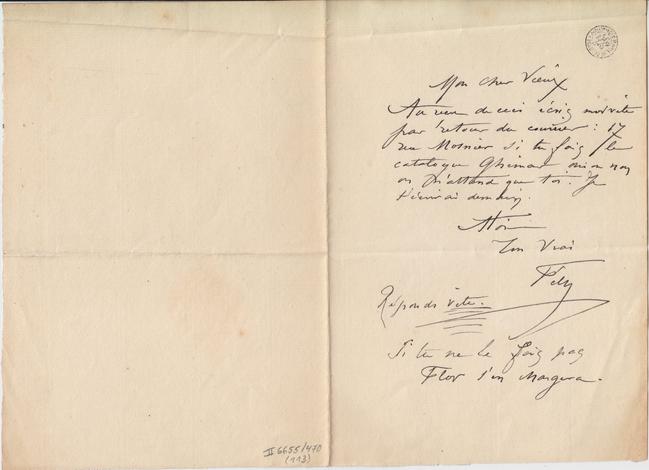 Mon cher Vieux
Au reçu de ceci écris moi vite
par retour du courrier : 17
rue Mosnier si tu fais le
catalogue Ghémar oui ou non
on n'attend que toi. Je
t'écrirai demain.
à toi
Ton Vrai
Fély
Réponds vite.
Si tu ne le fais pas
Flor s'en chargera.
II 6655/470
(113)